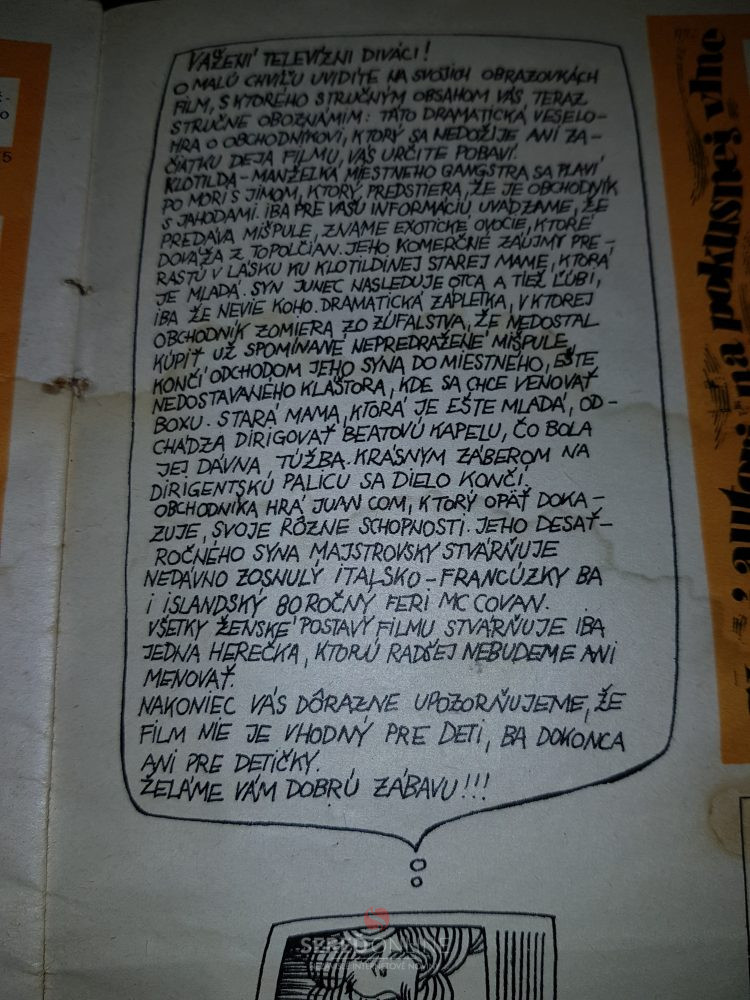 VÁŽENÍ TELEVÍZNI DIVÁCI!
O MALÚ CHVÍĽU UVIDÍTE NA SVOJICH OBRAZOVKÁCH
FILM, S KTORÉHO STRUČNÝM OBSAHOM VÁS TERAZ
STRUČNE OBOZNÁMIM: TÁTO DRAMATICKÁ VESELO-
HRA O OBCHODNÍKOVI, KTORÝ SA NEDOŽIJE ANI ZA-
ČIATKU DEJA FILMU, VÁS URČITE POBAVÍ.
KLOTILDA - MANŽELKA MIESTNEHO GANGSTRA SA PLAVÍ
PO MORI S JIMOM, KTORÝ PREDSTIERA, ŽE JE OBCHODNÍK
S JAHODAMI. IBA PRE VAŠU INFORMÁCIU UVÁDZAME, ŽE
PREDÁVA MIŠPULE, ZNÁME EXOTICKÉ OVOCIE, KTORÉ
DOVÁŽA Z TOPOĽČIAN. JEHO KOMERČNÉ ZÁUJMY PRE-
RASTÚ V LÁSKU KU KLOTILDINEJ STAREJ MAME, KTORÁ
JE MLADÁ. SYN JUNEC NASLEDUJE OTCA A TIEŽ ĽÚBI,
IBA ŽE NEVIE KOHO. DRAMATICKÁ ZÁPLETKA, V KTOREJ
OBCHODNÍK ZOMIERA ZO ZÚFALSTVA, ŽE NEDOSTAL
KÚPIŤ UŽ SPOMÍNANÉ NEPREDRAŽENÉ MIŠPULE,
KONČÍ ODCHODOM JEHO SYNA DO MIESTNEHO, EŠTE
NEDOSTAVANÉHO KLÁŠTORA, KDE SA CHCE VENOVAŤ
BOXU. STARÁ MAMA, KTORÁ JE EŠTE MLADÁ, OD-
CHÁDZA DIRIGOVAŤ BEATOVÚ KAPELU, ČO BOLA
JEJ DÁVNA TÚŽBA. KRÁSNYM ZÁBEROM NA
DIRIGENTSKÚ PALICU SA DIELO KONČÍ.
OBCHODNÍKA HRÁ JUAN COM, KTORÝ OPÄŤ DOKA-
ZUJE SVOJE RÔZNE SCHOPNOSTI. JEHO DESAŤ-
ROČNÉHO SYNA MAJSTROVSKY STVÁRŇUJE
NEDÁVNO ZOSNULÝ ITALSKO-FRANCÚZKY BA
I ISLANDSKÝ 80 ROČNÝ FERI MC COVAN.
VŠETKY ŽENSKÉ POSTAVY FILMU STVÁRŇUJE IBA
JEDNA HEREČKA, KTORÚ RADŠEJ NEBUDEME ANI
MENOVAŤ.
NAKONIEC VÁS DÔRAZNE UPOZORŇUJEME, ŽE
FILM NIE JE VHODNÝ PRE DETI, BA DOKONCA
ANI PRE DETIČKY.
ŽELÁME VÁM DOBRÚ ZÁBAVU!!!
autori na pokusnej vlne
SEREĎONLINE